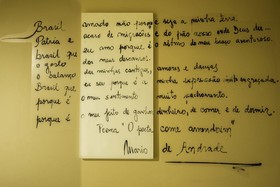 Brasil amado não porque seja a minha terra
Pátria é acaso de migrações e do pão nosso onde Deus der...
Brasil que eu amo porque é o ritmo do meu braço aventuroso.
o gosto dos meus descansos,
o balanço das minhas cantigas, amores e danças
Brasil que eu sou porque é minha expressão engraçada,
porque é o meu sentimento muito pachorrento.
porque é o meu jeito de ganhar dinheiro, de comer e de dormir.
"O poeta come amendoim"
Mario de Andrade